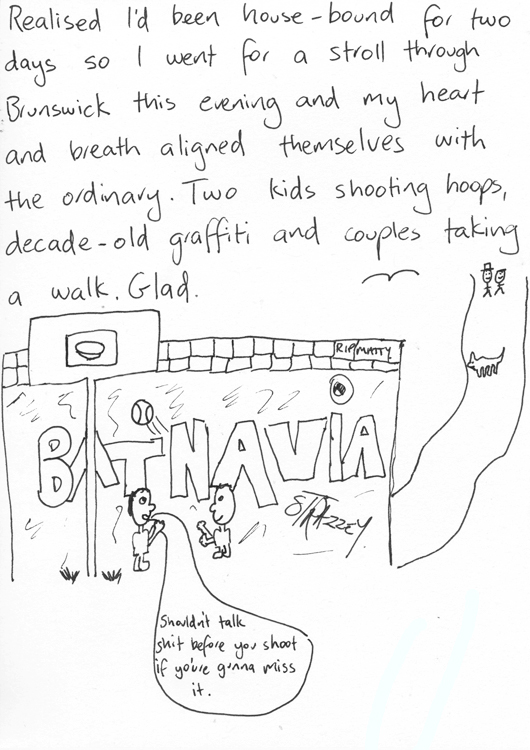 Realised I'd been house-bound for two
days so I went for a stroll through
Brunswick this evening and my heart
and breath aligned themselves with
the ordinary. Two kids shooting hoops,
decade-old graffiti and couples taking
a walk. Glad.
RIP MATTY
BATNAVIA
STAZZEY.
Shouldn't talk
shit before you shoot
if you're gunna miss
it.